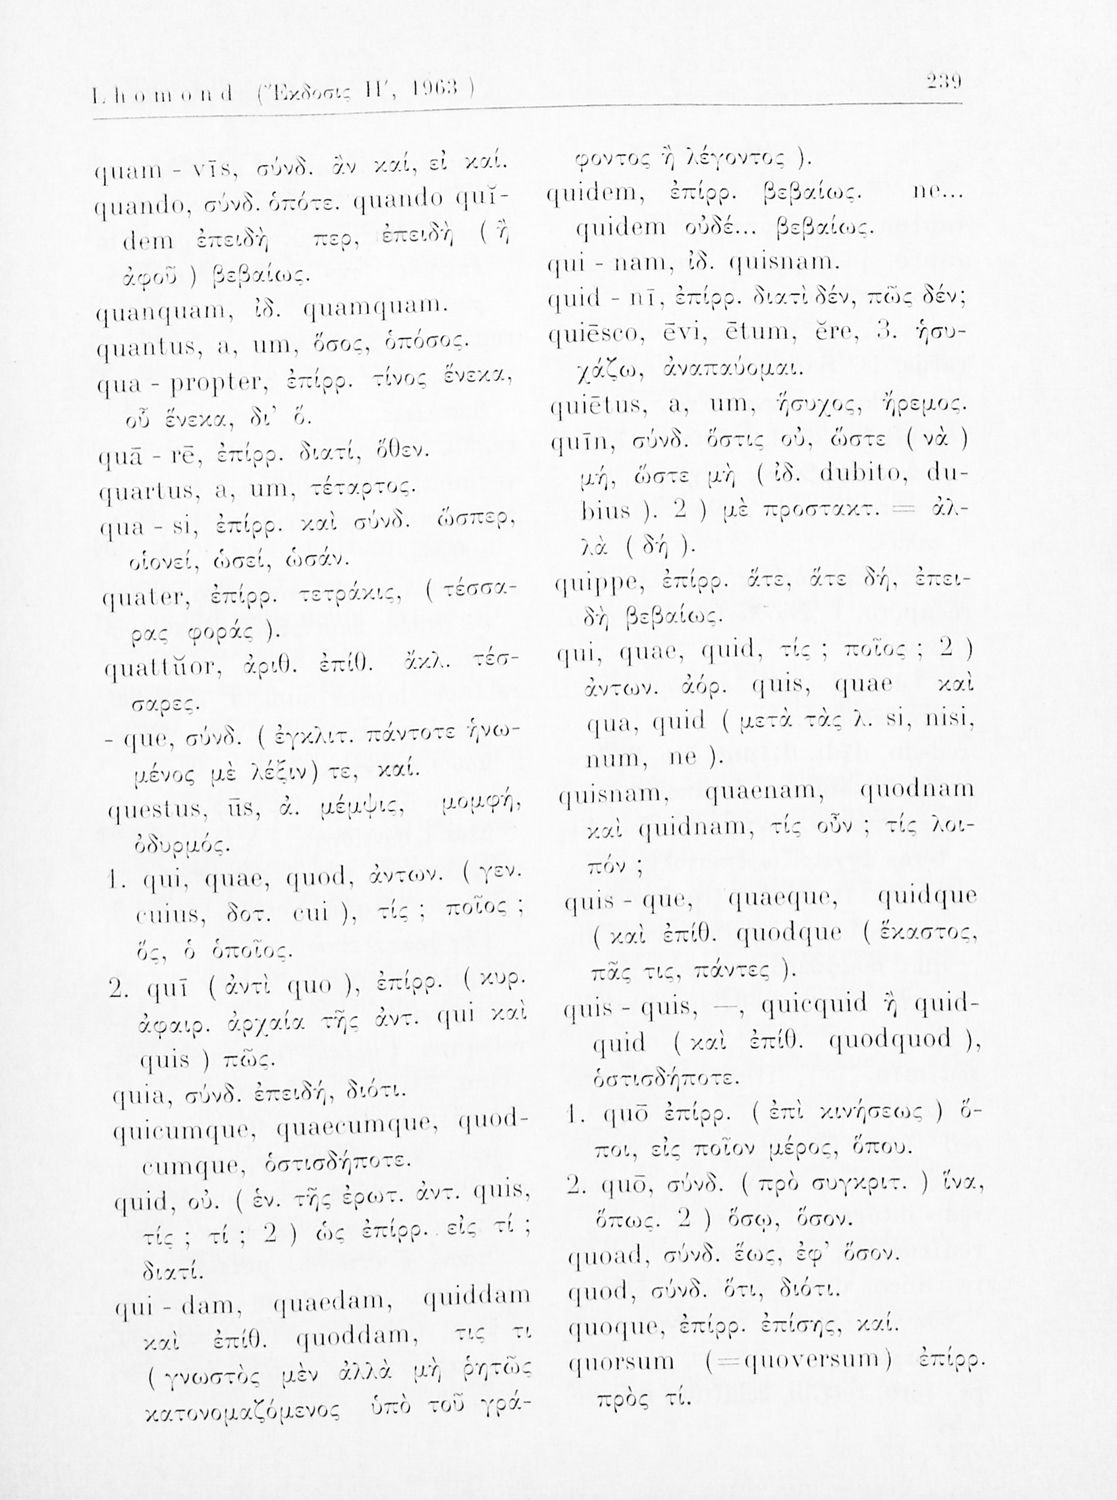 Lhomond (Ἔκδοσις Η′, 1963 )
239
quam - vīs, σύνδ. ἂν καί, εἰ καί.
quando, σύνδ. ὁπότε. quando quĭ-
dem ἐπειδὴ περ, ἐπειδὴ ( ἢ
ἀφοῦ ) βεβαίως.
quanquam, ἰδ. quamquam.
quantus, a, um, ὅσος, ὁπόσος.
qua - propter, ἐπίρρ. τίνος ἕνεκα,
οὗ ἕνεκα, δι᾽ ὅ.
quā - rē, ἐπίρρ. διατί, ὅθεν.
quartus, a, um, τέταρτος.
qua - si, ἐπίρρ. καὶ σύνδ. ὥσπερ,
οἱονεί, ὡσεί, ὡσάν.
quater, ἐπίρρ. τετράκις, ( τέσσα-
ρας φοράς ).
quattŭor, ἀριθ. ἐπίθ. ἄκλ. τέσ-
σαρες.
- que, σύνδ. ( ἐγκλιτ. πάντοτε ἡνω-
μένος μὲ λέξιν) τε, καί.
questus, ūs, ἀ. μέμψις, μομφή,
ὀδυρμός.
1. qui, quae, quod, ἀντων. ( γεν.
cuius, δοτ. cui ), τίς ; ποῖος ;
ὅς, ὁ ὁποῖος.
2. quī ( ἀντὶ quo ), ἐπίρρ. ( κυρ.
ἀφαιρ. ἀρχαία τῆς ἀντ. qui καὶ
quis ) πῶς.
quia, σύνδ. ἐπειδή, διότι.
quicumque, quaecumque, quod-
cumque, ὁστισδήποτε.
quid, οὐ. ( ἑν. τῆς ἐρωτ. ἀντ. quis,
τίς ; τί ; 2 ) ὡς ἐπίρρ. εἰς τί ;
διατί.
qui - dam, quaedam, quiddam
καὶ ἐπίθ. quoddam, τις τι
( γνωστὸς μὲν ἀλλὰ μὴ ῥητῶς
κατονομαζόμενος ὑπὸ τοῦ γρά-
φοντος ἢ λέγοντος ).
quidem, ἐπίρρ. βεβαίως. ne...
quidem οὐδέ... βεβαίως.
qui - nam, ἰδ. quisnam.
quid - nī, ἐπίρρ. διατὶ δέν, πῶς δέν;
quiēsco, ēvi, ētum, ĕre, 3. ἡσυ-
χάζω, ἀναπαύομαι.
quiētus, a, um, ἥσυχος, ἤρεμος.
quīn, σύνδ. ὅστις οὐ, ὥστε ( νὰ )
μή, ὥστε μὴ ( ἰδ. dubito, du-
bius ). 2 ) μὲ προστακτ. = ἀλ-
λὰ ( δή ).
quippe, ἐπίρρ. ἅτε, ἅτε δή, ἐπει-
δὴ βεβαίως.
qui, quae, quid, τίς ; ποῖος ; 2 )
ἀντων. ἀόρ. quis, quae καὶ
qua, quid ( μετὰ τὰς λ. si, nisi,
num, ne ).
quisnam, quaenam, quodnam
καὶ quidnam, τίς οὖν ; τίς λοι-
πόν ;
quis - que, quaeque, quidque
( καὶ ἐπίθ. quodque ( ἕκαστος,
πᾶς τις, πάντες ).
quis - quis, —, quicquid ἢ quid-
quid ( καὶ ἐπίθ. quodquod ),
ὁστισδήποτε.
1. quō ἐπίρρ. ( ἐπὶ κινήσεως ) ὅ-
ποι, εἰς ποῖον μέρος, ὅπου.
2. quō, σύνδ. ( πρὸ συγκριτ. ) ἵνα,
ὅπως. 2 ) ὅσῳ, ὅσον.
quoad, σύνδ. ἕως, ἐφ᾽ ὅσον.
quod, σύνδ. ὅτι, διότι.
quoque, ἐπίρρ. ἐπίσης, καί.
quorsum (=quoversum) ἐπίρρ.
πρὸς τί.